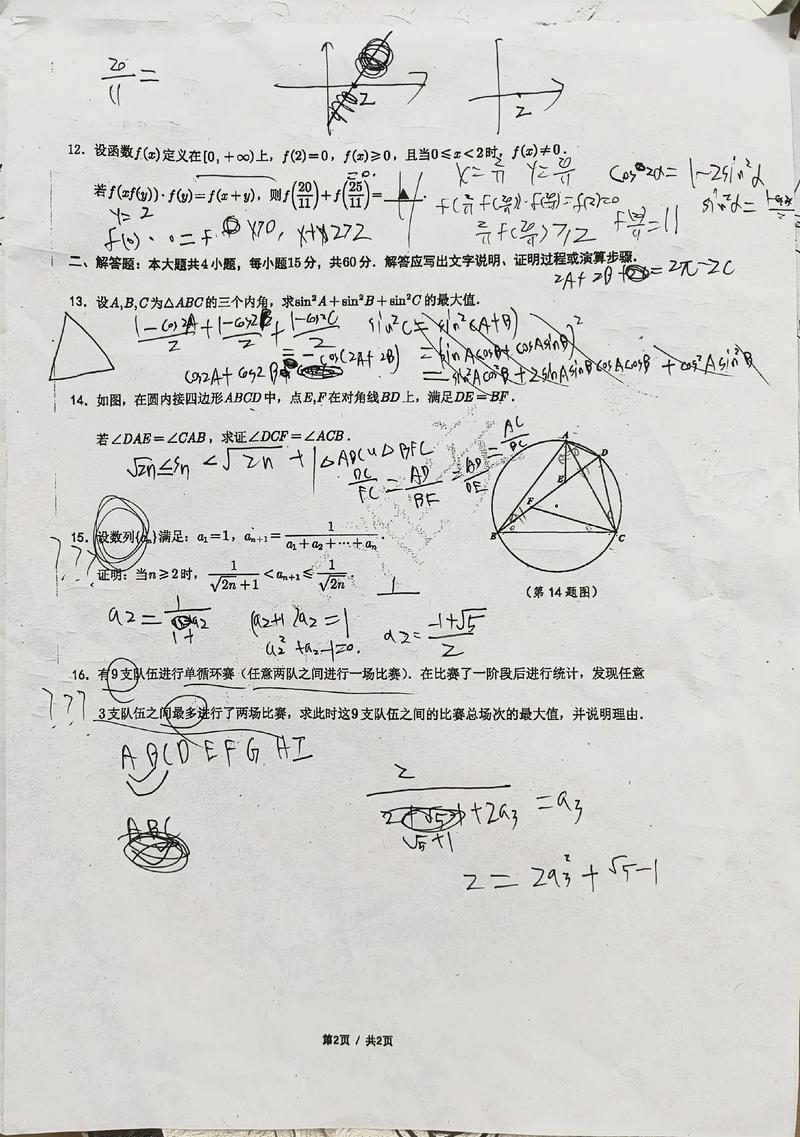 20/11 =
2
2
12. 设函数f(x)定义在[0,+∞)上，f(2)=0，f(x)≥0，且当0≤x<2时，f(x)≠0.
若f(xf(y))·f(y)=f(x+y)，则f(20/11)+f(25/11)=
=0.
x=2/11 y=20/11
cos2α=1-2sin²α
sin²α=
y=2
f(2/11 f(20/11))·f(20/11)=f(2)=0
2/11 f(20/11)≥2
f(20/11)=11
x≥0, x+y≥2
二、解答题：本大题共4小题，每小题15分，共60分．解答应写出文字说明、证明过程或演算步骤．
=2π-2C
13. 设A,B,C为△ABC的三个内角，求sin²A+sin²B+sin²C的最大值.
1-cos2A/2 + 1-cos2B/2 + 1-cos2C/2
sin²C=sin²(A+B)
=(sinAcosB+cosAsinB)²
=-cos(2A+2B)
cos2A+cos2B
=sin²Acos²B+2sinAsinBcosAcosB+cos²Asin²B
14. 如图，在圆内接四边形ABCD中，点E,F在对角线BD上，满足DE=BF.
若∠DAE=∠CAB，求证∠DCF=∠ACB.
√2n≤Sn<√2n+1
△ADC∽△BFC
DC/FC=AD/BF=AD/DE=AC/BC
A
D
E
F
B
C
（第14题图）
15. 设数列{aₙ}满足：a₁=1，aₙ₊₁=1/(a₁+a₂+⋯+aₙ).
???
证明：当n≥2时，1/√(2n+1)<aₙ₊₁≤1/√(2n).
(a2+1)a2=1
a2²+a2-1=0.
a2=(-1+√5)/2
16. 有9支队伍进行单循环赛（任意两队之间进行一场比赛）．在比赛了一阶段后进行统计，发现任意
???
3支队伍之间最多进行了两场比赛，求此时这9支队伍之间的比赛总场次的最大值，并说明理由.
A B C D E F G H I
ABC
2
+2a3 =a3
√5+1
2=2a3²+√5-1
第2页 / 共2页